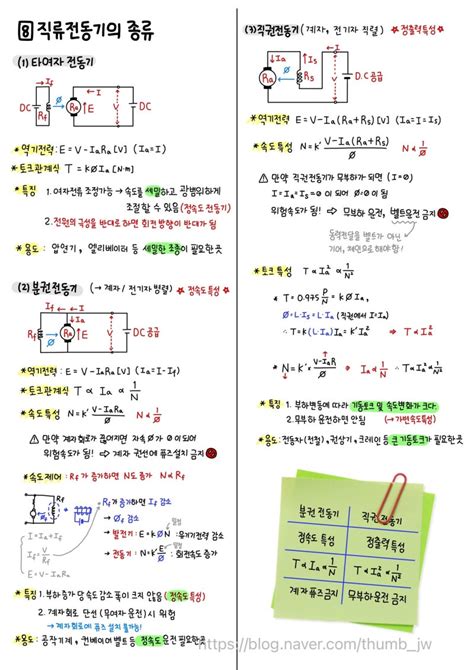 8 직류전동기의 종류
(1) 타여자 전동기
DC Rf Ø Ra Ia ←I E V DC
*역기전력 : E = V-IaRa [V] (Ia=I)
*토크관계식 T = KØIa [N·m]
*특징 1. 여자전류 조정가능 → 속도를 세밀하고 광범위하게
조절할 수 있음 (정속도 전동기)
2. 전원의 극성을 반대로 하면 회전방향이 반대가 됨
*용도 : 압연기, 엘리베이터 등 세밀한 조종이 필요한곳
(2) 분권전동기 (→ 계자 / 전기자 병렬) ★정속도특성★
Rf If Ø Ra Ia ←I E V DC공급
*역기전력 : E = V-IaRa [V] (Ia=I-If)
*토크관계식 T ∝ Ia ∝ 1/N
*속도특성 N = K' V-IaRa/Ø N ∝ 1/Ø
⚠ 만약 계자회로가 끊어지면 자속 Ø가 0이되어
위험속도가 됨! → 계자 권선에 퓨즈설치 금지
*속도제어 : Rf가 증가하면 N도 증가 N ∝ Rf
Rf Rf가 증가하면 If 감소
→ Øf 감소
I = Ia+If
If = V/Rf
E = V-IaRa
→ 발전기 : E = KØN : 유기기전력 감소
→ 전동기 : N = K' E/Ø : 회전속도 증가
*특징 1. 부하 증가 당 속도 감소 폭이 크지 않음 (정속도 특성)
2. 계자회로 단선 (무여자 운전)시 위험
→ 계자회로에 퓨즈 설치 불가능!
*용도 : 공작기계, 컨베이어벨트 등 정속도 운전 필요한곳
(3) 직권전동기 (계자, 전기자 직렬) ★정출력특성★
Ia Ra Ø Is Rs ←I E V DC공급
*역기전력 E = V-Ia(Ra+Rs) [V] (Ia=I=Is)
*속도특성 N = K' V-Ia(Ra+Rs)/Ø N ∝ 1/Ø
⚠ 만약 직권전동기가 무부하가 되면 (I=0)
I=Ia=Is=0이 되어 Ø=0이 됨
위험속도가 됨! ⇒ 무부하 운전, 벨트운전 금지
동력전달을 벨트가 아닌
기어, 체인으로 해야함!
*토크특성 T ∝ Ia² ∝ 1/N²
T = 0.975 P/N = KØIa
Ø=L·Is=L·Ia (직권에서 I=Ia)
∴ T = K(L·Ia)Ia = KIa² ⇒ T ∝ Ia²
N = K' × V-IaR/Ø ⇒ Ia ∝ 1/N ∴ T ∝ Ia² ∝ 1/N²
*특징 1. 부하변동에 따라 기동토크 및 속도변화가 크다.
2. 무부하 운전하면 안됨 (→ 가변속도특성)
*용도 : 전동차(전철), 권상기, 크레인 등 큰 기동토크가 필요한곳
분권 전동기 직권 전동기
정속도 특성 정출력 특성
T ∝ Ia ∝ 1/N T ∝ Ia² ∝ 1/N²
계자 퓨즈금지 무부하운전 금지
https://blog.naver.com/thumb_jw